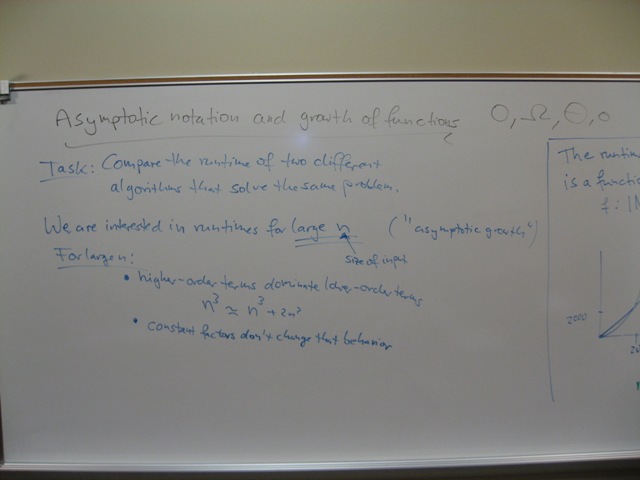 Asymptotic notation and growth of functions O, Ω, Θ, o
Task: Compare the runtime of two different
algorithms that solve the same problem.
We are interested in runtimes for large n ("asymptotic growth")
size of input
For large n:
• higher-order terms dominate lower-order terms
n³ ≈ n³ + 2n²
• constant factors don't change that behavior
The runtim
is a functio
f: IN
2000
20